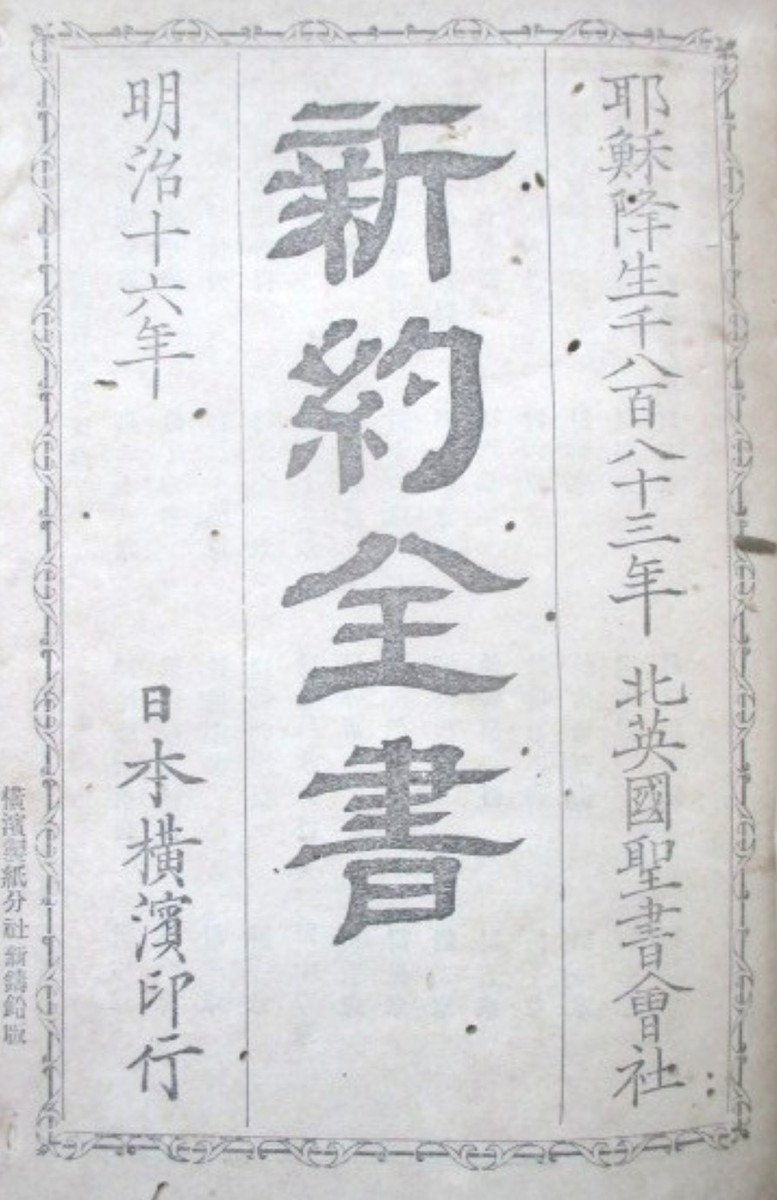 耶穌降生千八百八十三年 北英國聖書會社
新約全書
明治十六年 日本橫濱印行
橫濱製紙分社新鑄鉛版